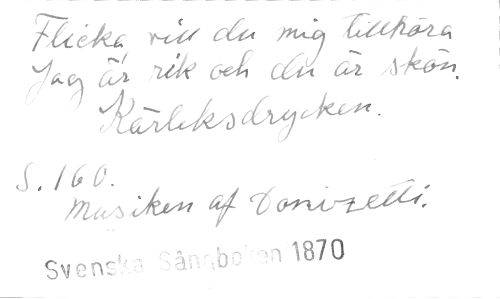 Flicka, vill du mig tillhöra
Jag är rik och du är skön.
Kärleksdrycken.
S. 160.
Musiken af Donizetti.
Svenska Sångboken 1870